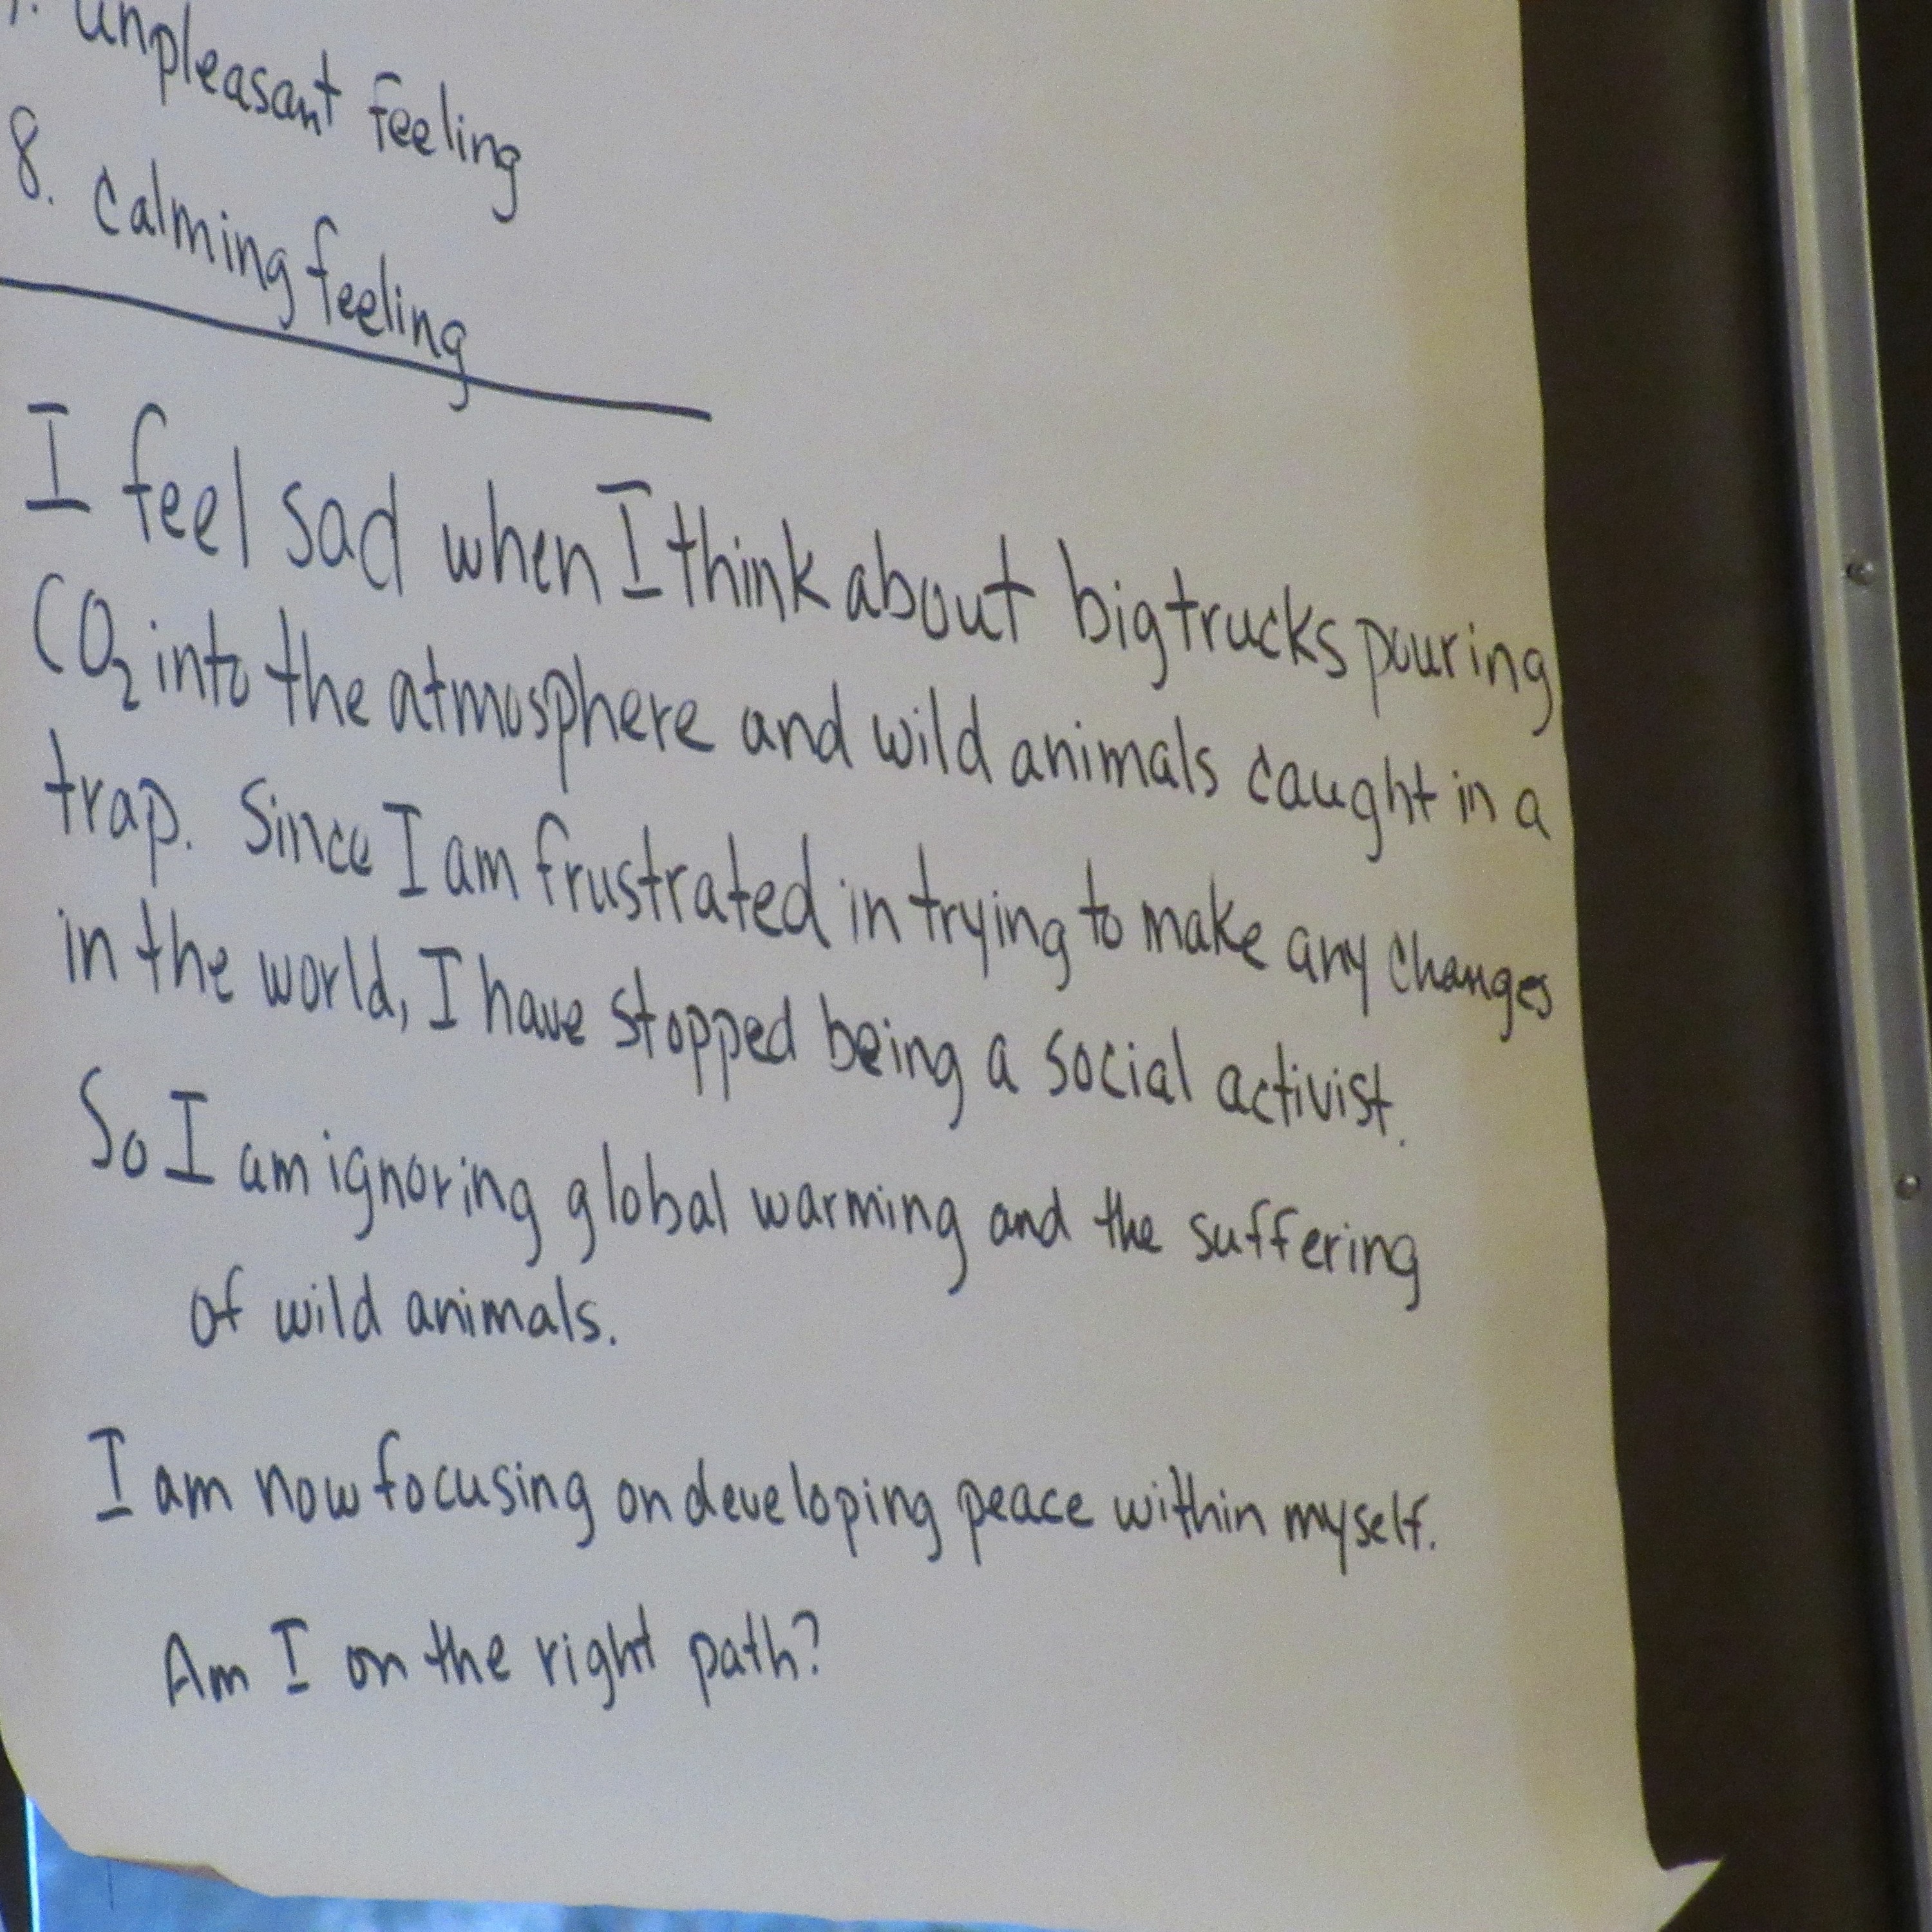 7. unpleasant feeling
8. calming feeling
I feel sad when I think about big trucks pouring
CO₂ into the atmosphere and wild animals caught in a
trap. Since I am frustrated in trying to make any changes
in the world, I have stopped being a social activist.
So I am ignoring global warming and the suffering
of wild animals.
I am now focusing on developing peace within myself.
Am I on the right path?